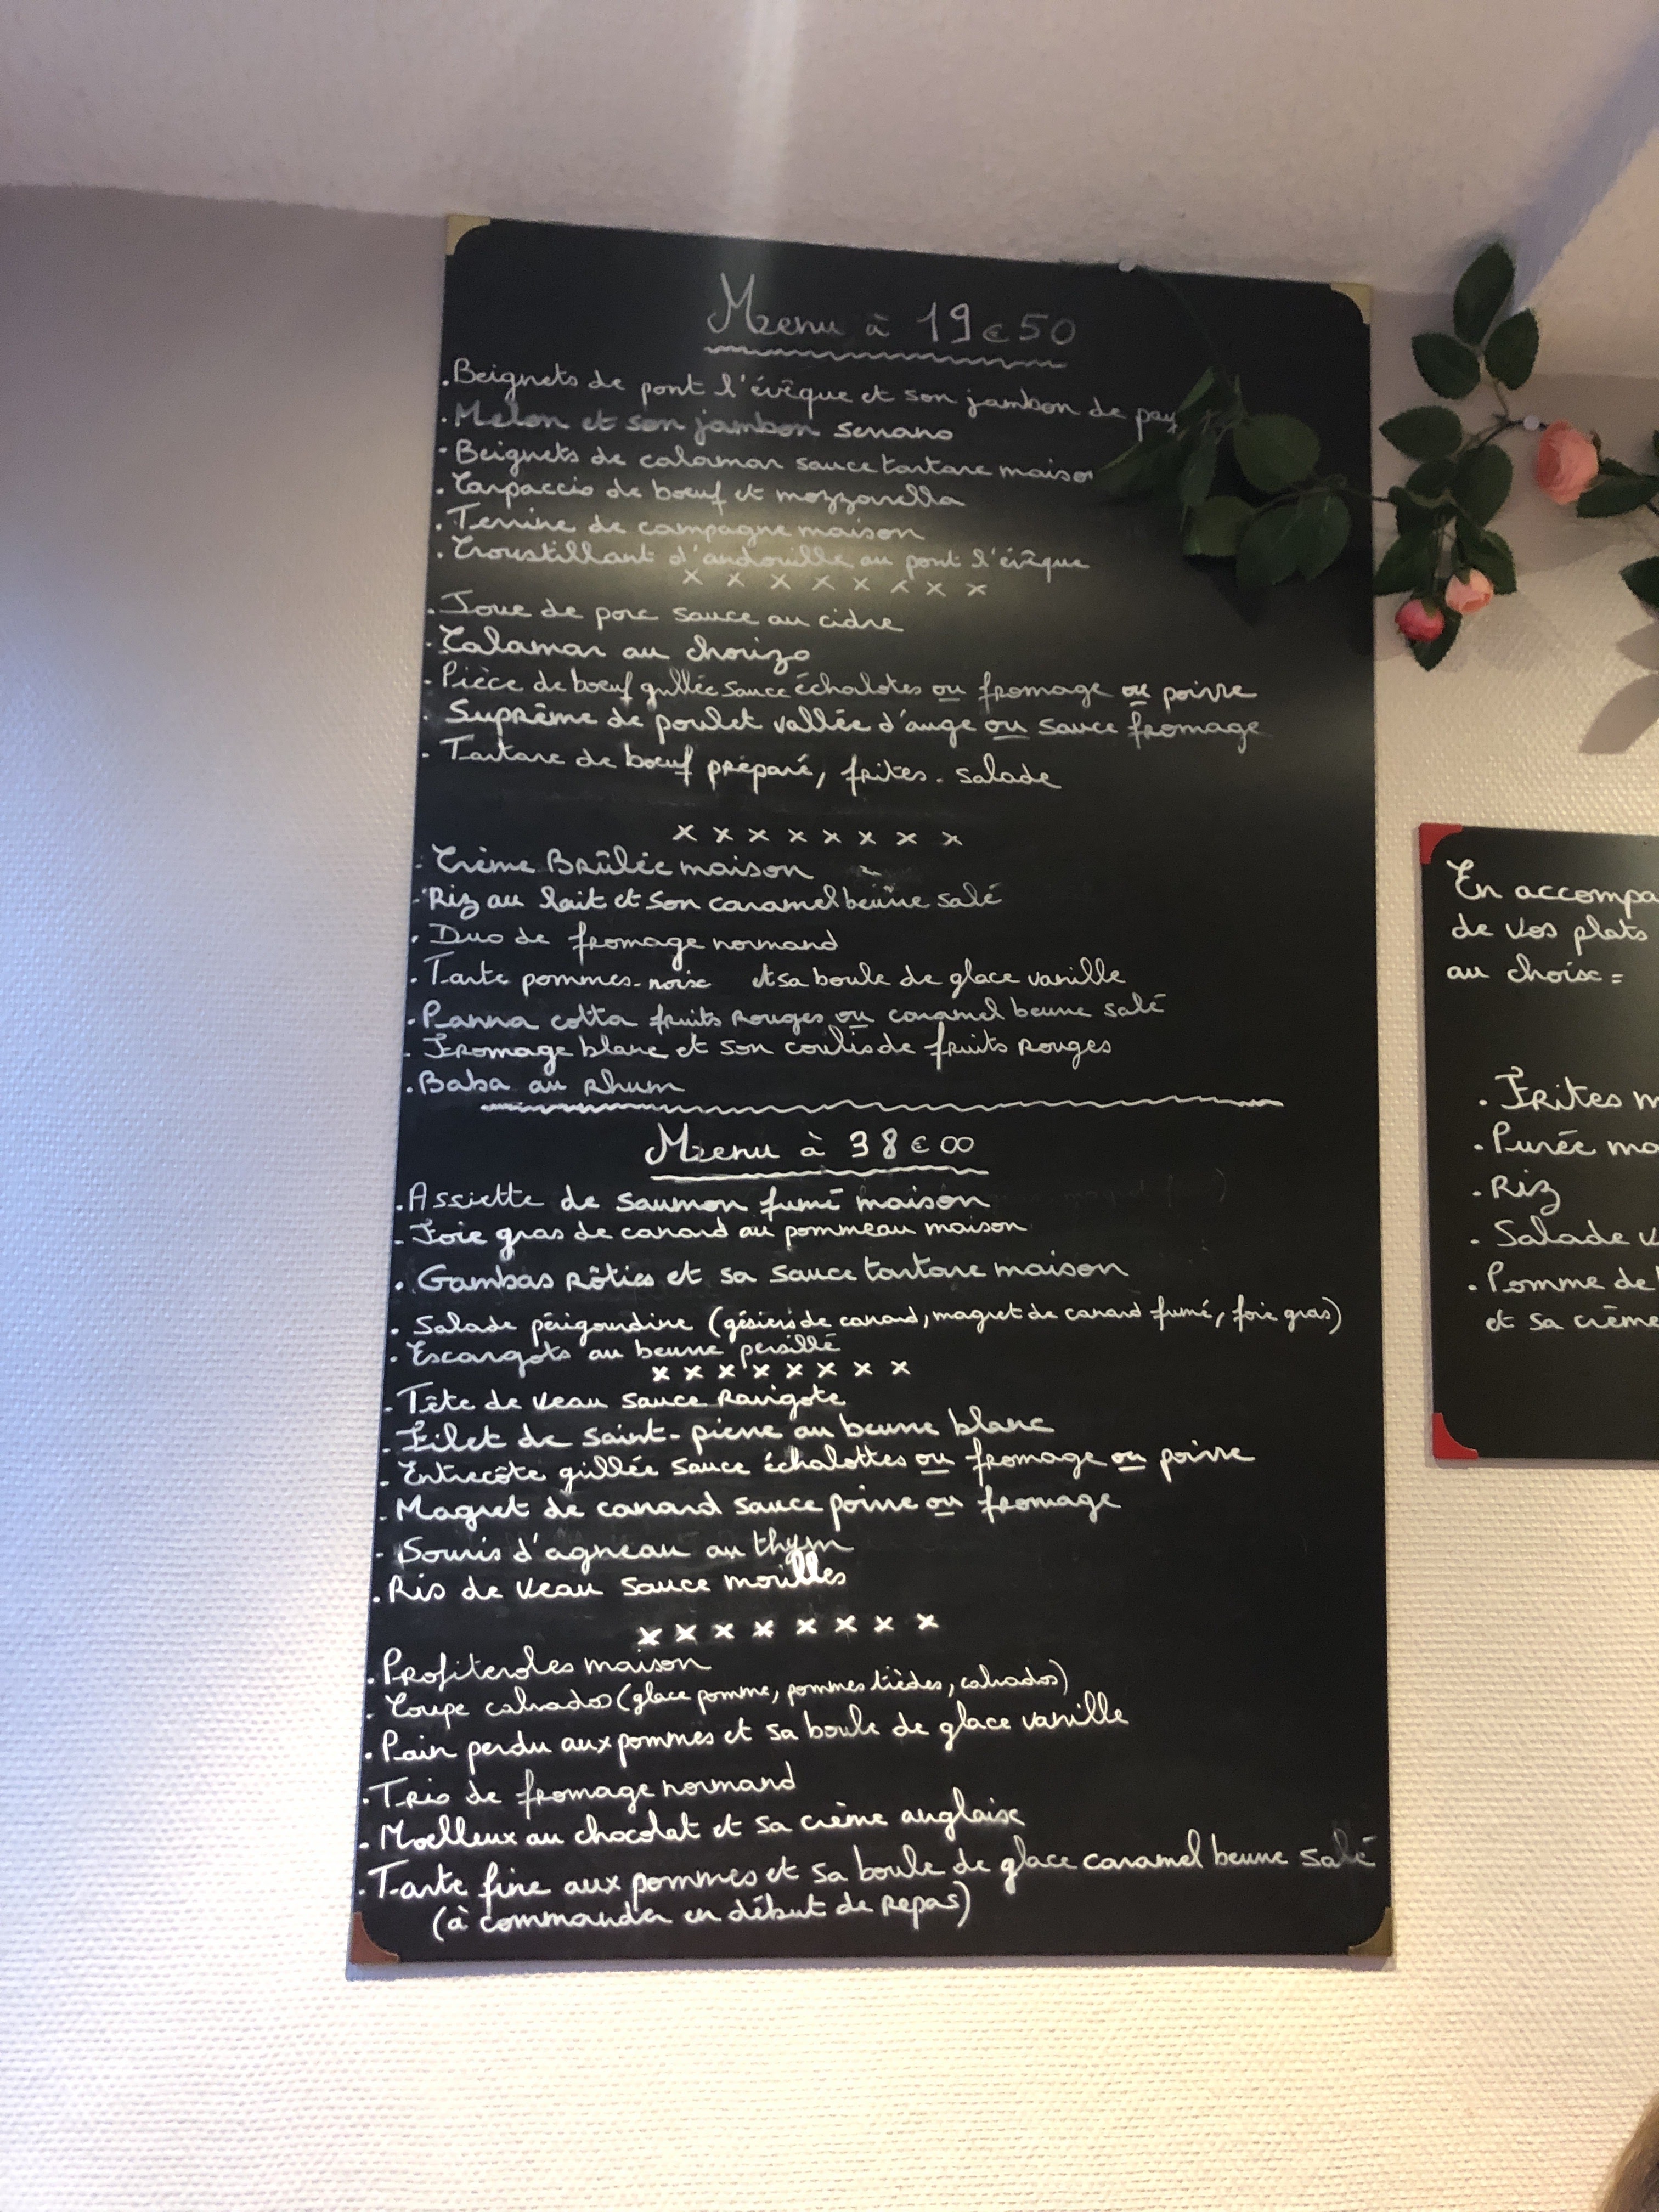 Menu à 19€50
. Beignets de pont l'évêque et son jambon de pay
. Melon et son jambon serrano
. Beignets de calamar sauce tartare maison
. Carpaccio de bœuf et mozzarella
. Terrine de campagne maison
. Croustillant d'andouille au pont l'évêque
x x x x x x x x
. Joue de porc sauce au cidre
. Calamar au chorizo
. Pièce de bœuf grillée sauce échalotes ou fromage ou poivre
. Suprême de poulet vallée d'auge ou sauce fromage
. Tartare de bœuf préparé, frites - salade
x x x x x x x x
. Crème Brûlée maison
. Riz au lait et son caramel beurre salé
. Duo de fromage normand
. Tarte pommes-noix et sa boule de glace vanille
. Panna cotta fruits rouges ou caramel beurre salé
. Fromage blanc et son coulis de fruits rouges
. Baba au rhum
Menu à 38€00
. Assiette de saumon fumé maison
. Foie gras de canard au pommeau maison
. Gambas rôties et sa sauce tartare maison
. Salade périgourdine (gésiers de canard, magret de canard fumé, foie gras)
. Escargots au beurre persillé
x x x x x x x x
. Tête de veau sauce Ravigote
. Filet de saint-pierre au beurre blanc
. Entrecôte grillée sauce échalottes ou fromage ou poivre
. Magret de canard sauce poivre ou fromage
. Souris d'agneau au thym
. Ris de veau sauce morilles
x x x x x x x x
. Profiteroles maison
. Coupe calvados (glace pomme, pommes tièdes, calvados)
. Pain perdu aux pommes et sa boule de glace vanille
. Trio de fromage normand
. Moelleux au chocolat et sa crème anglaise
. Tarte fine aux pommes et sa boule de glace caramel beurre salé
(à commander en début de repas)
En accompa
de vos plats
au choix =
. Frites m
. Purée ma
. Riz
. Salade v
. Pomme de
et sa crème